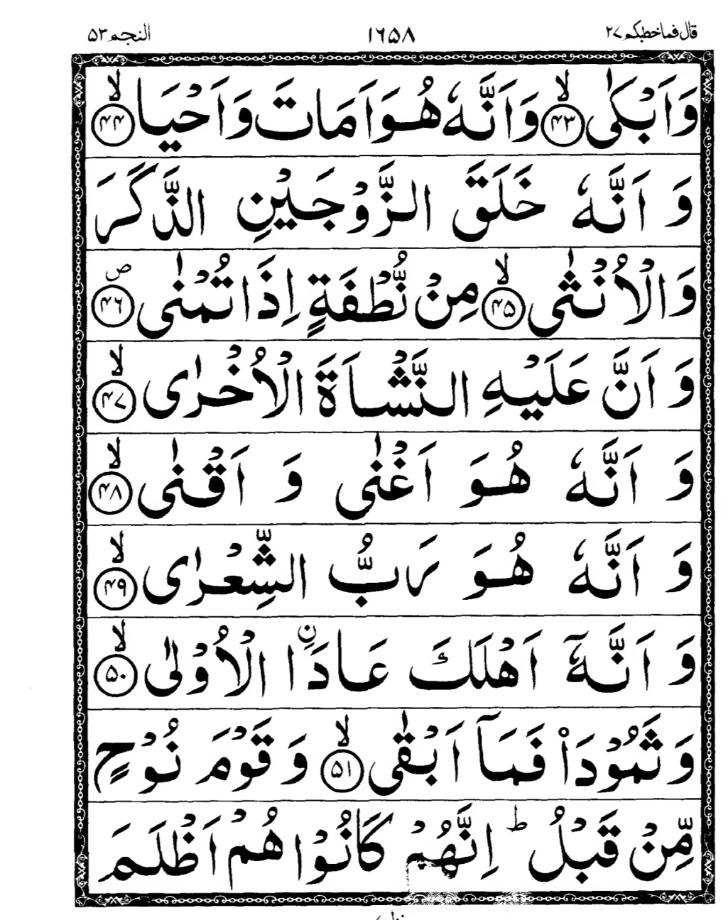 قال فما خطبكم ۲۷ ۱۶۵۸ النجم ۵۳
وَاَبۡكٰىۙ‏ ﴿۴۳﴾ وَاَنَّهٗ هُوَ اَمَاتَ وَ اَحۡيَا ۙ‏ ﴿۴۴﴾
وَ اَنَّهٗ خَلَقَ الزَّوۡجَيۡنِ الذَّكَرَ
وَالۡاُنۡثٰىۙ‏ ﴿۴۵﴾ مِنۡ نُّطۡفَةٍ اِذَا تُمۡنٰى ۖ‏ ﴿۴۶﴾
وَ اَنَّ عَلَيۡهِ النَّشۡاَةَ الۡاُخۡرٰىۙ‏ ﴿۴۷﴾
وَ اَنَّهٗ هُوَ اَغۡنٰى وَ اَقۡنٰىۙ‏ ﴿۴۸﴾
وَ اَنَّهٗ هُوَ رَبُّ الشِّعۡرٰىۙ‏ ﴿۴۹﴾
وَ اَنَّهٗۤ اَهۡلَكَ عَادَا۟ ۨالۡاُوۡلٰىۙ‏ ﴿۵۰﴾
وَثَمُوۡدَا۟ فَمَاۤ اَبۡقٰىۙ‏ ﴿۵۱﴾ وَ قَوۡمَ نُوۡحٍ
مِّنۡ قَبۡلُ‌ؕ اِنَّهُمۡ كَانُوۡا هُمۡ اَظۡلَمَ